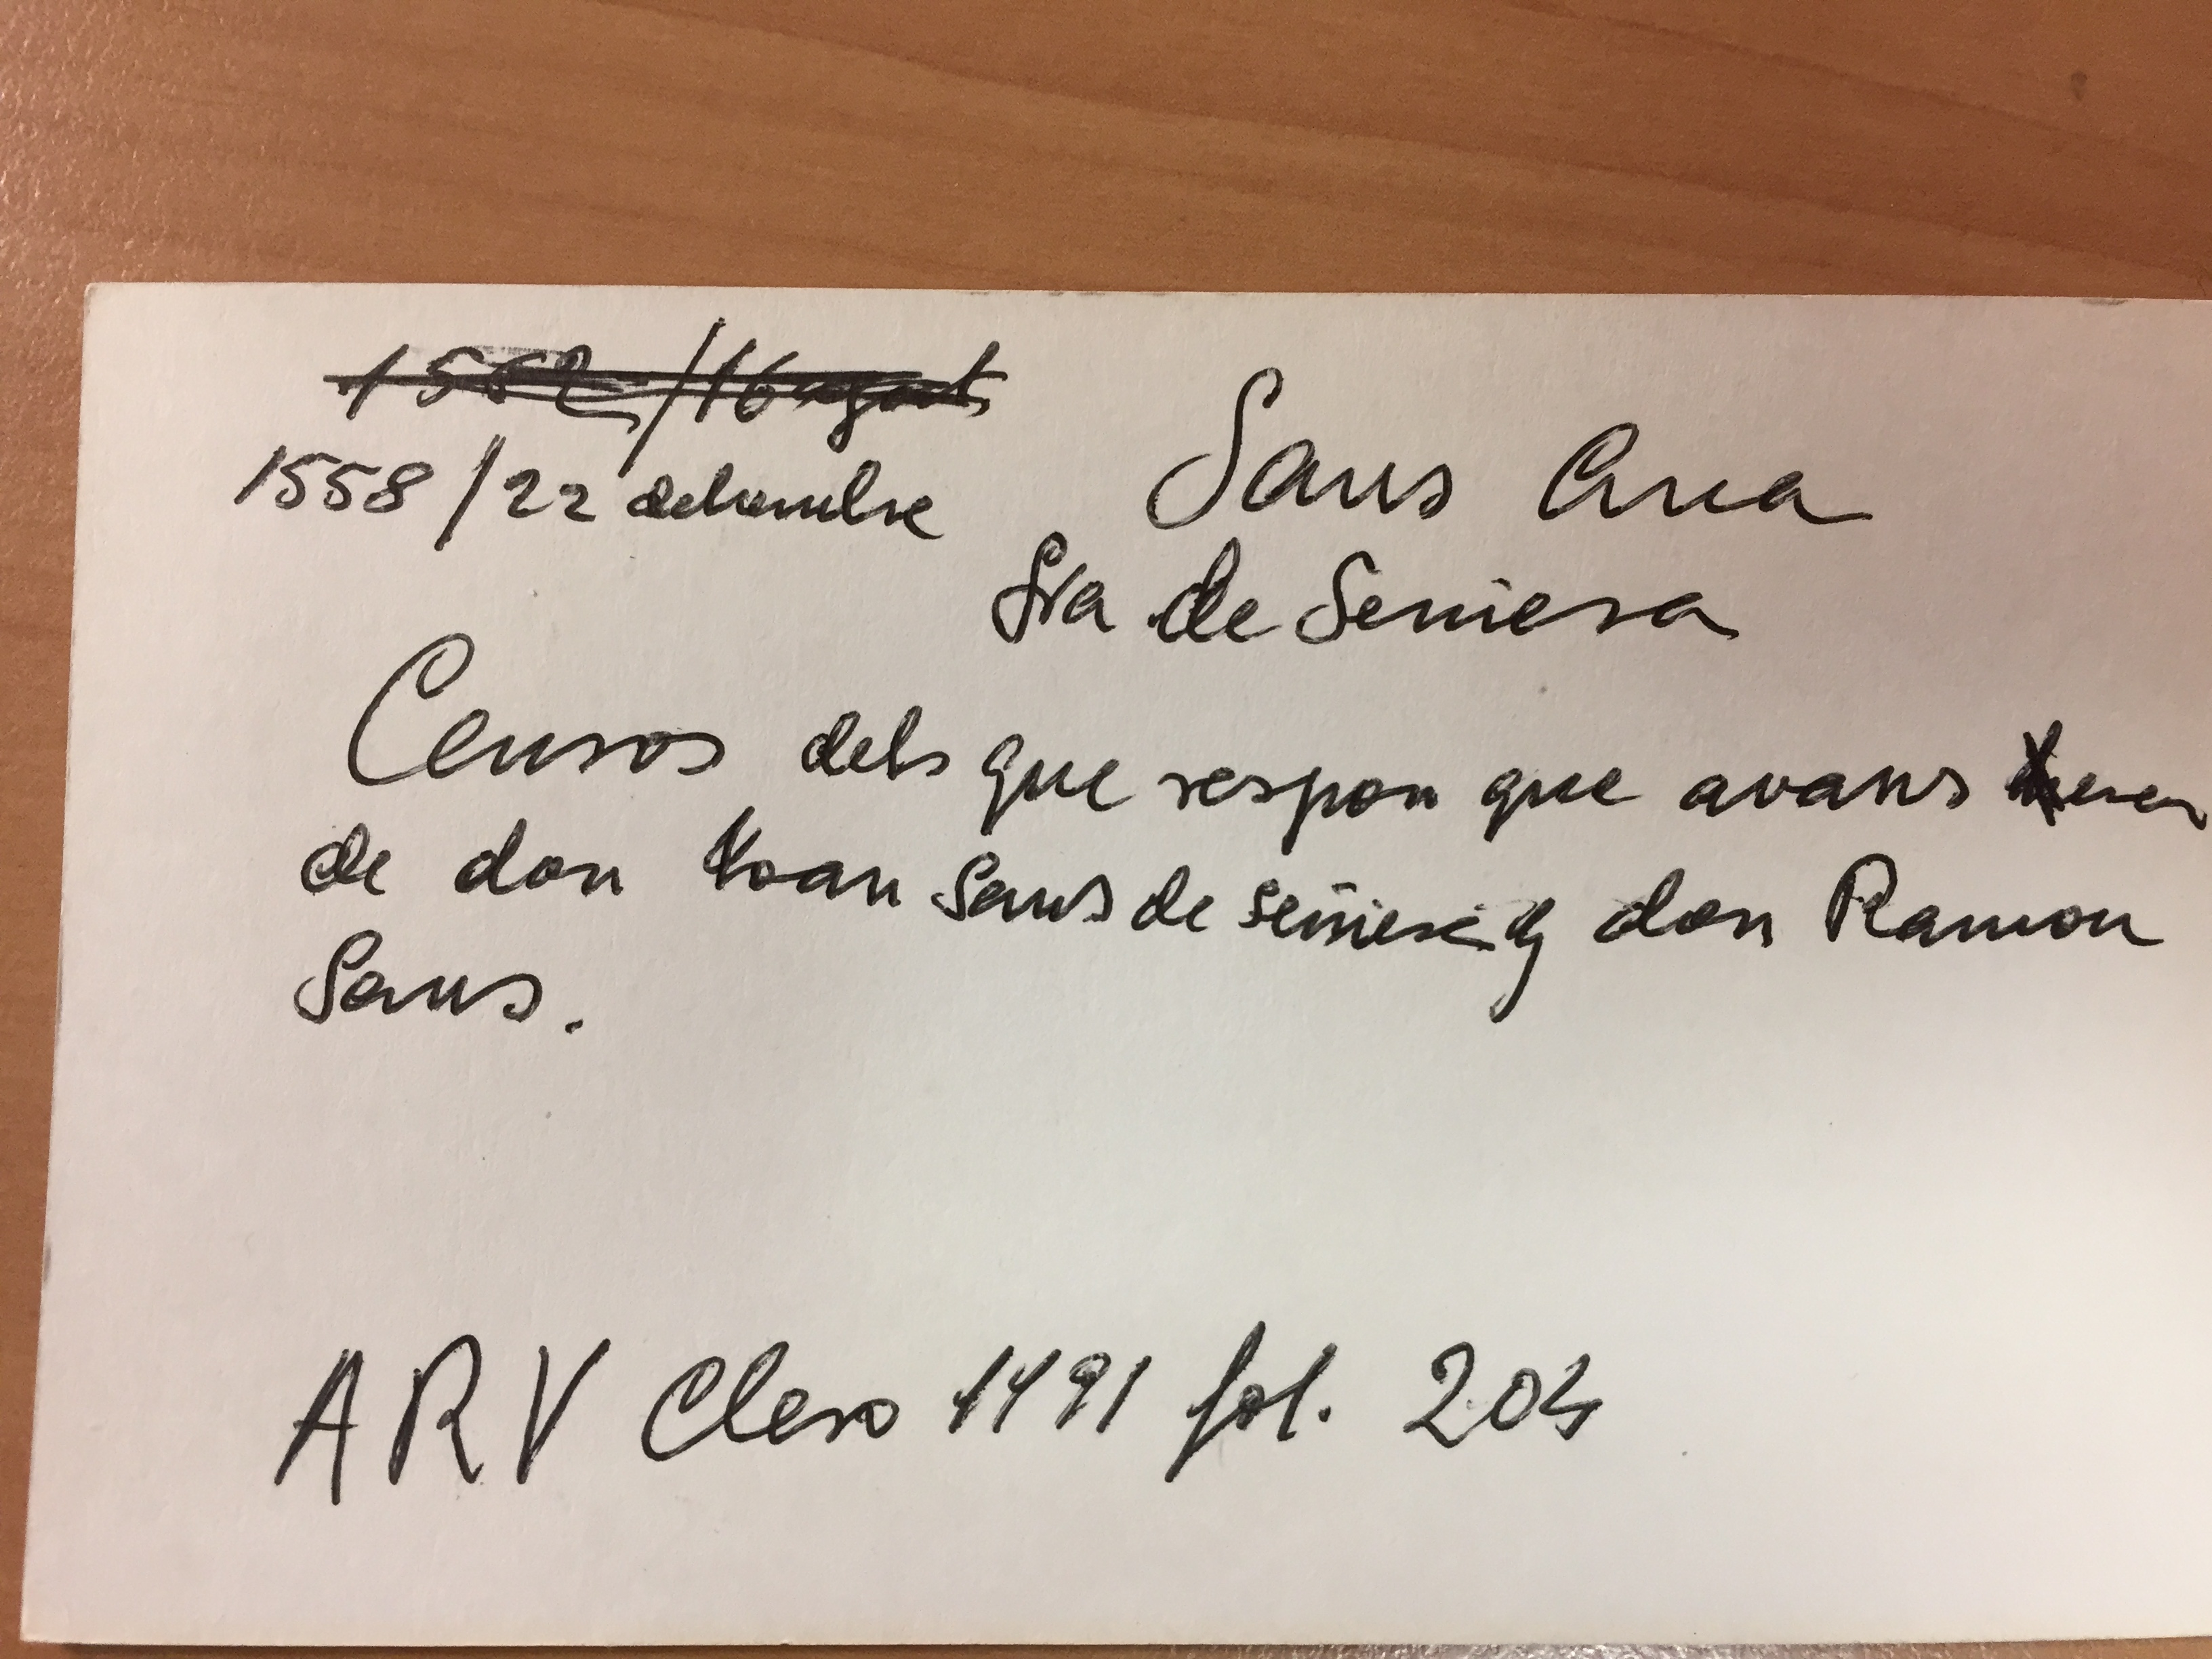 1562/16 agost
1558/22 dehembre
Sans Ana
Sra de Seniera
Censos dels que respon que avans eren
de don Hoan Sans de señiera y don Ramon
Sans.
ARV Clero 1491 fol. 204